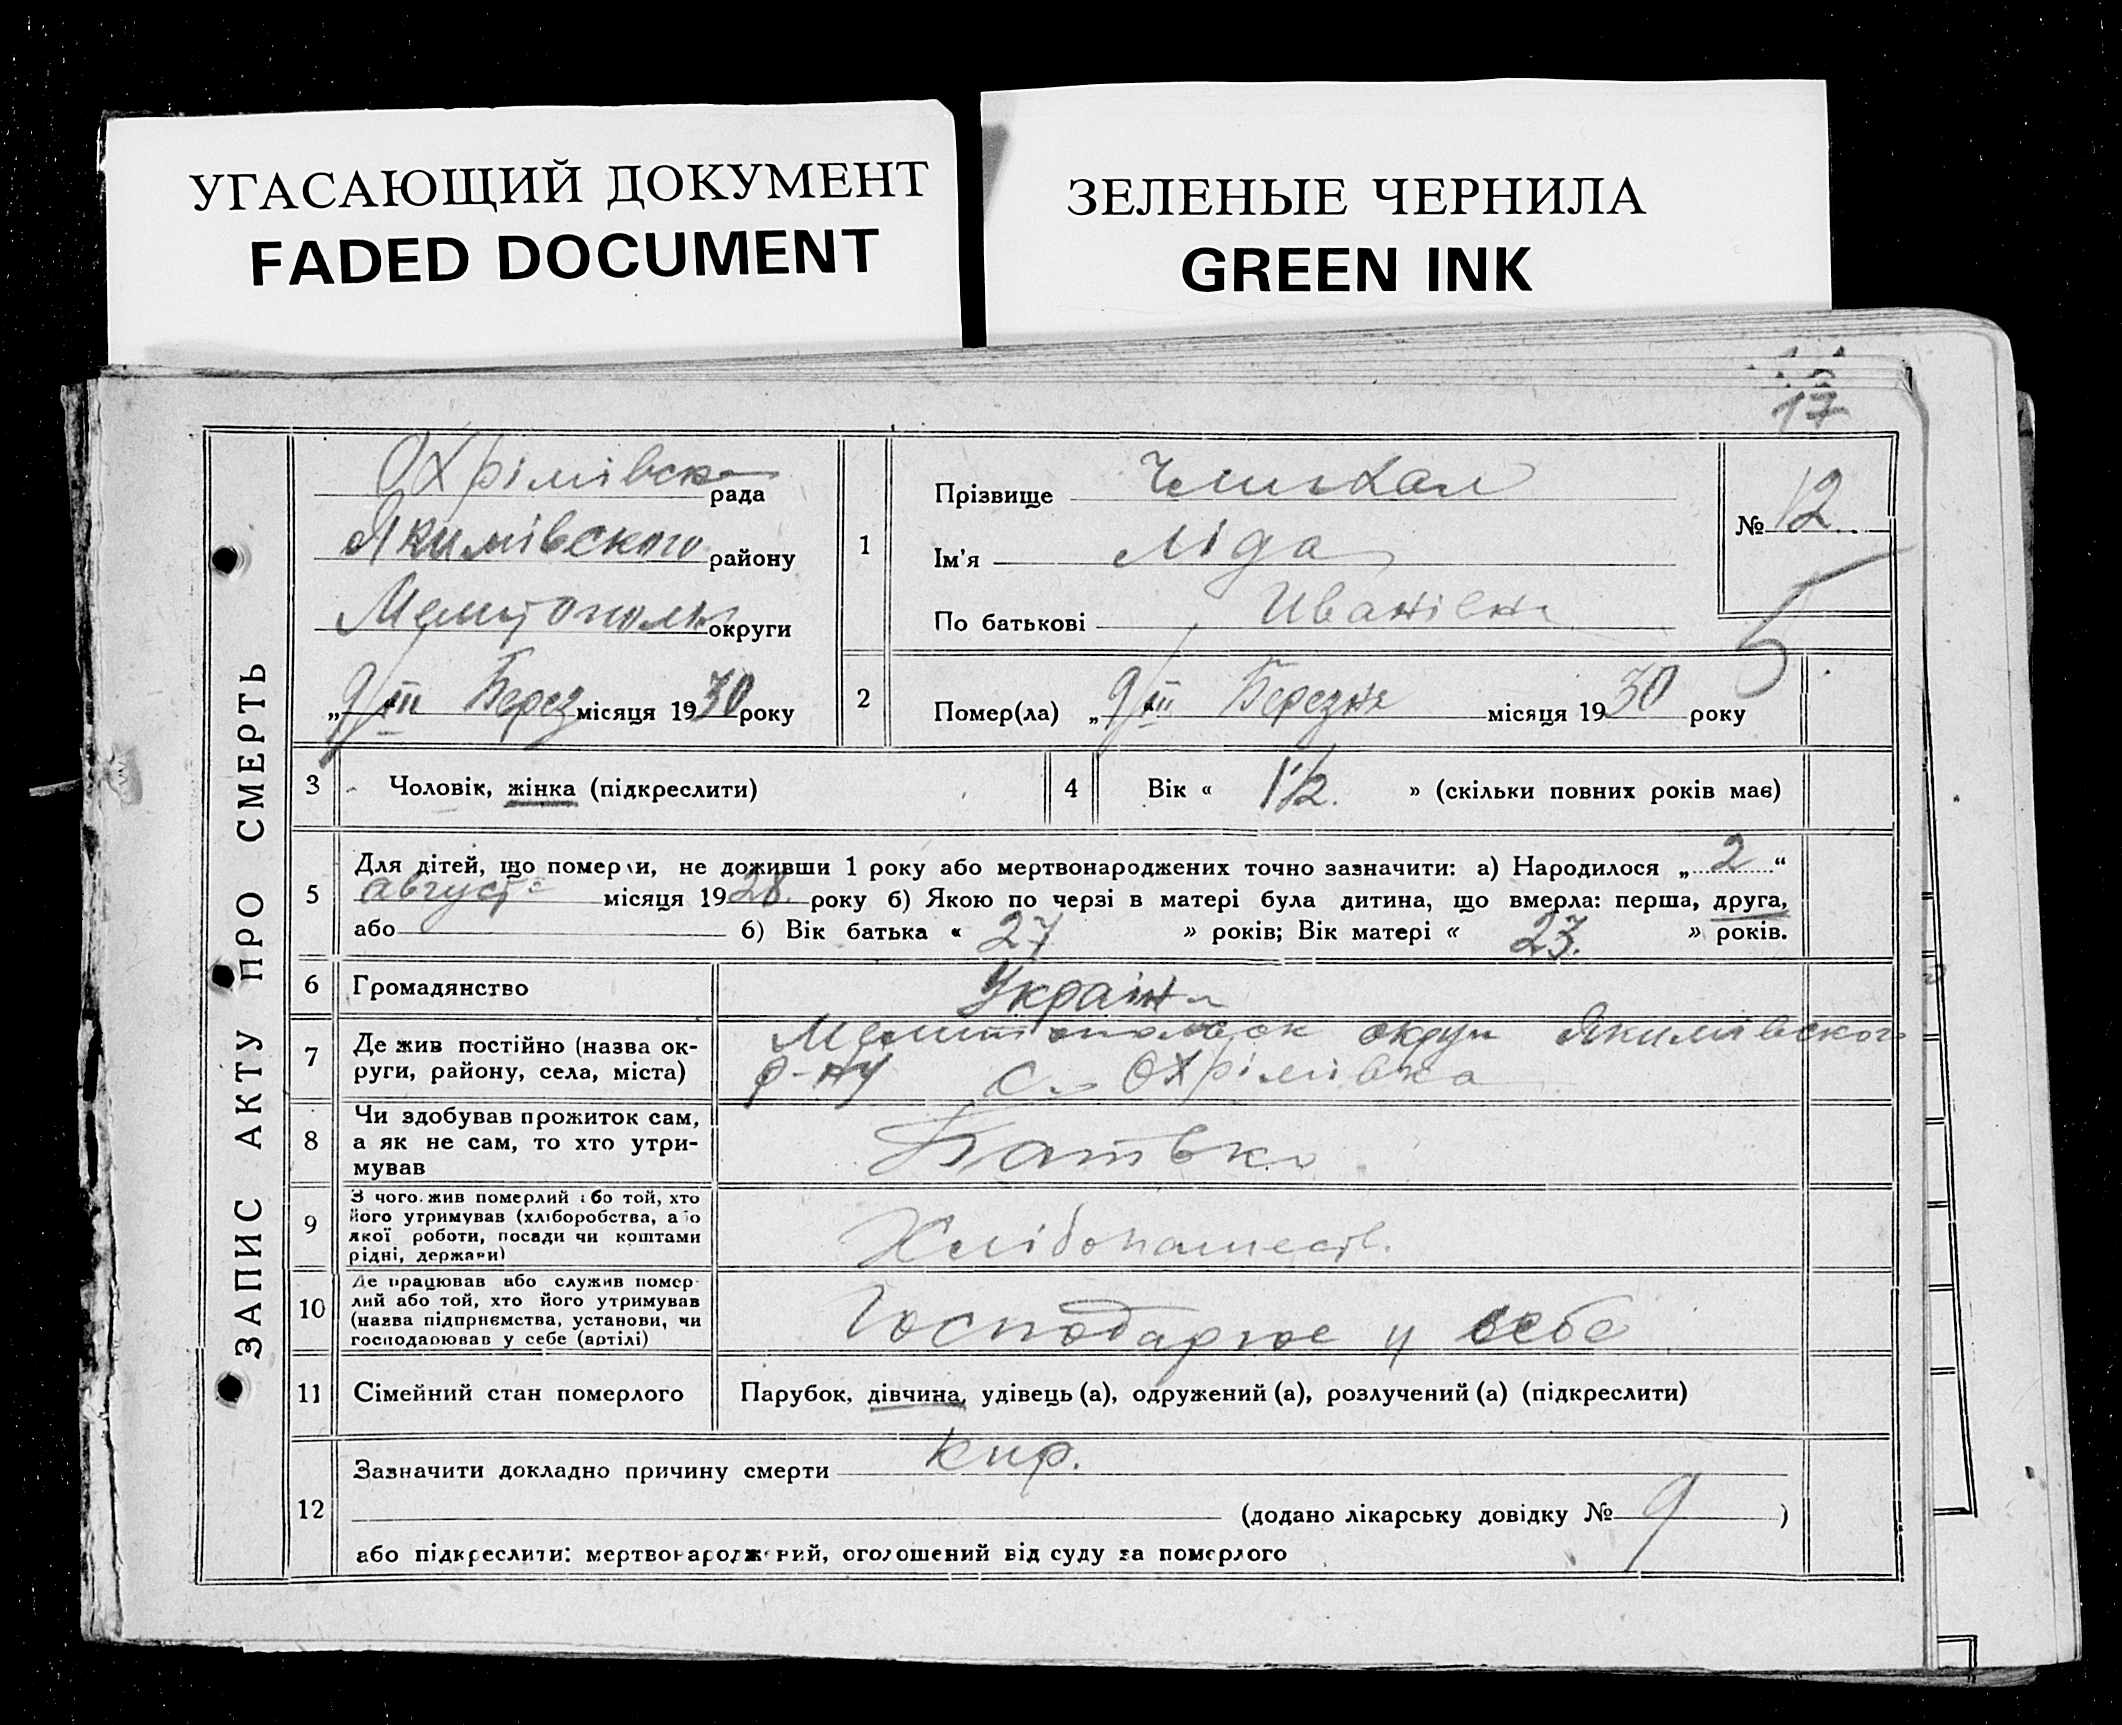 УГАСАЮЩИЙ ДОКУМЕНТ
FADED DOCUMENT
ЗЕЛЕНЫЕ ЧЕРНИЛА
GREEN INK
17
ЗАПИС АКТУ ПРО СМЕРТЬ
Охрімівська рада
Якимівського району
Мелітополь округи
„9/III“ Берез місяця 1930 року
1
Прізвище
Ім'я Ліда
По батькові Иванівна
№ 12
5
2 Помер(ла) „9/III“ Березня місяця 1930 року
3 Чоловік, жінка (підкреслити)
4 Вік « 1 1/2. » (скільки повних років має)
5 Для дітей, що померли, не доживши 1 року або мертвонароджених точно зазначити: а) Народилося „2“
августа місяця 1928. року б) Якою по черзі в матері була дитина, що вмерла: перша, друга,
або б) Вік батька « 27 » років; Вік матері « 23. » років.
6 Громадянство Україн
7 Де жив постійно (назва ок-
руги, району, села, міста)
Мелитопольск округи Якимівского
р-ну с. Охрімівка
8 Чи здобував прожиток сам,
а як не сам, то хто утри-
мував
Батько
9 З чого жив померлий або той, хто
його утримував (хліборобства, або
якої роботи, посади чи коштами
рідні, держави)
Хлібопашест.
10 Де працював або служив помер-
лий або той, хто його утримував
(назва підприємства, установи, чи
господарював у себе (артілі)
Господарює у себе
11 Сімейний стан померлого Парубок, дівчина, удівець (а), одружений (а), розлучений (а) (підкреслити)
12 Зазначити докладно причину смерти Кир.
(додано лікарську довідку № 9 )
або підкреслити: мертвонароджений, оголошений від суду за померлого